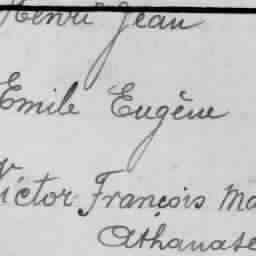 Henri Jean
Emile Eugène
Victor François Ma
Athanase